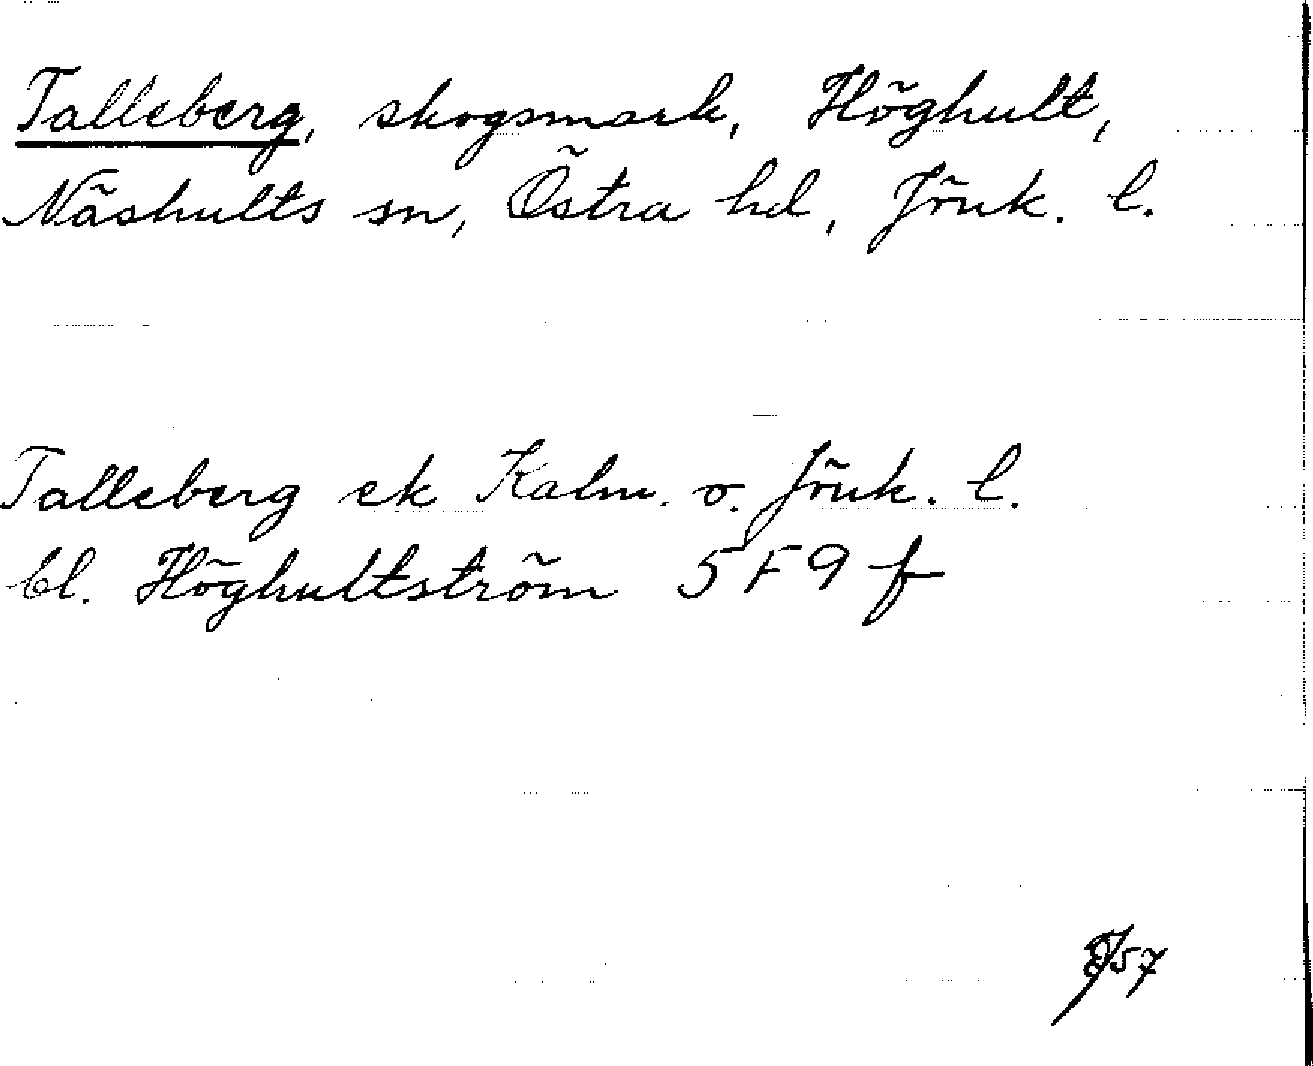 Talleberg, skogsmark, Höghult,
Näshults sn, Östra hd, Jönk. l.
Talleberg ek Kalm. o. Jönk. l.
bl. Höghultström 5 F 9 f